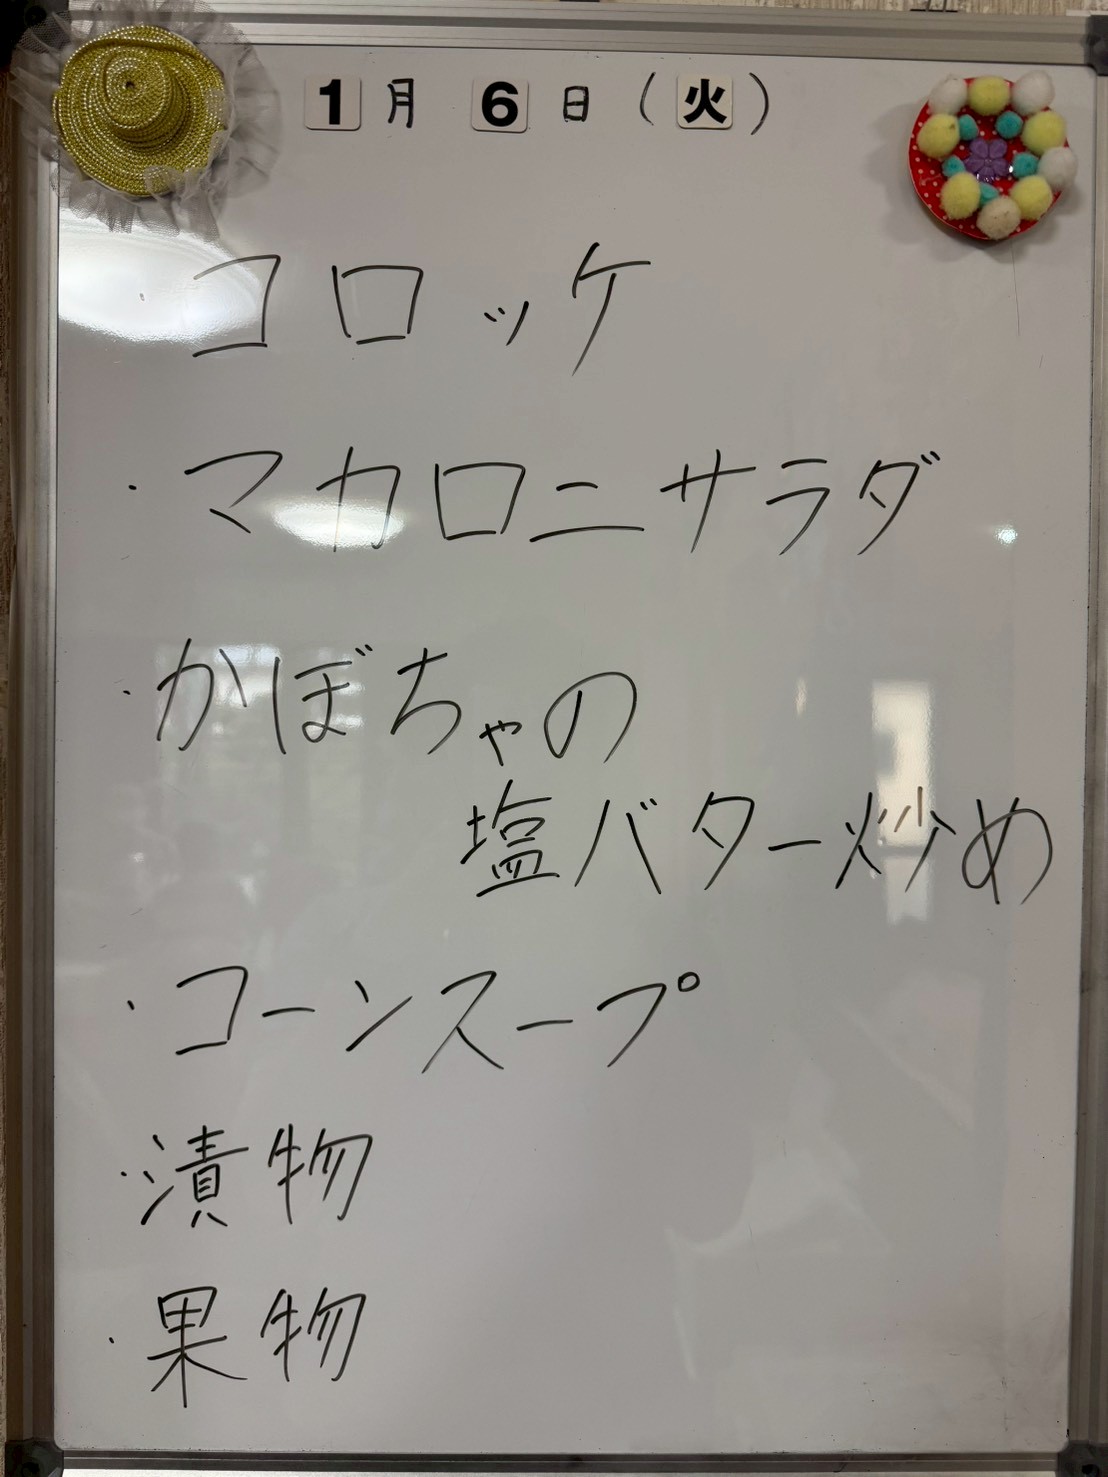 1月 6日(火)
コロッケ
・マカロニサラダ
・かぼちゃの
塩バター炒め
・コーンスープ
・漬物
・果物